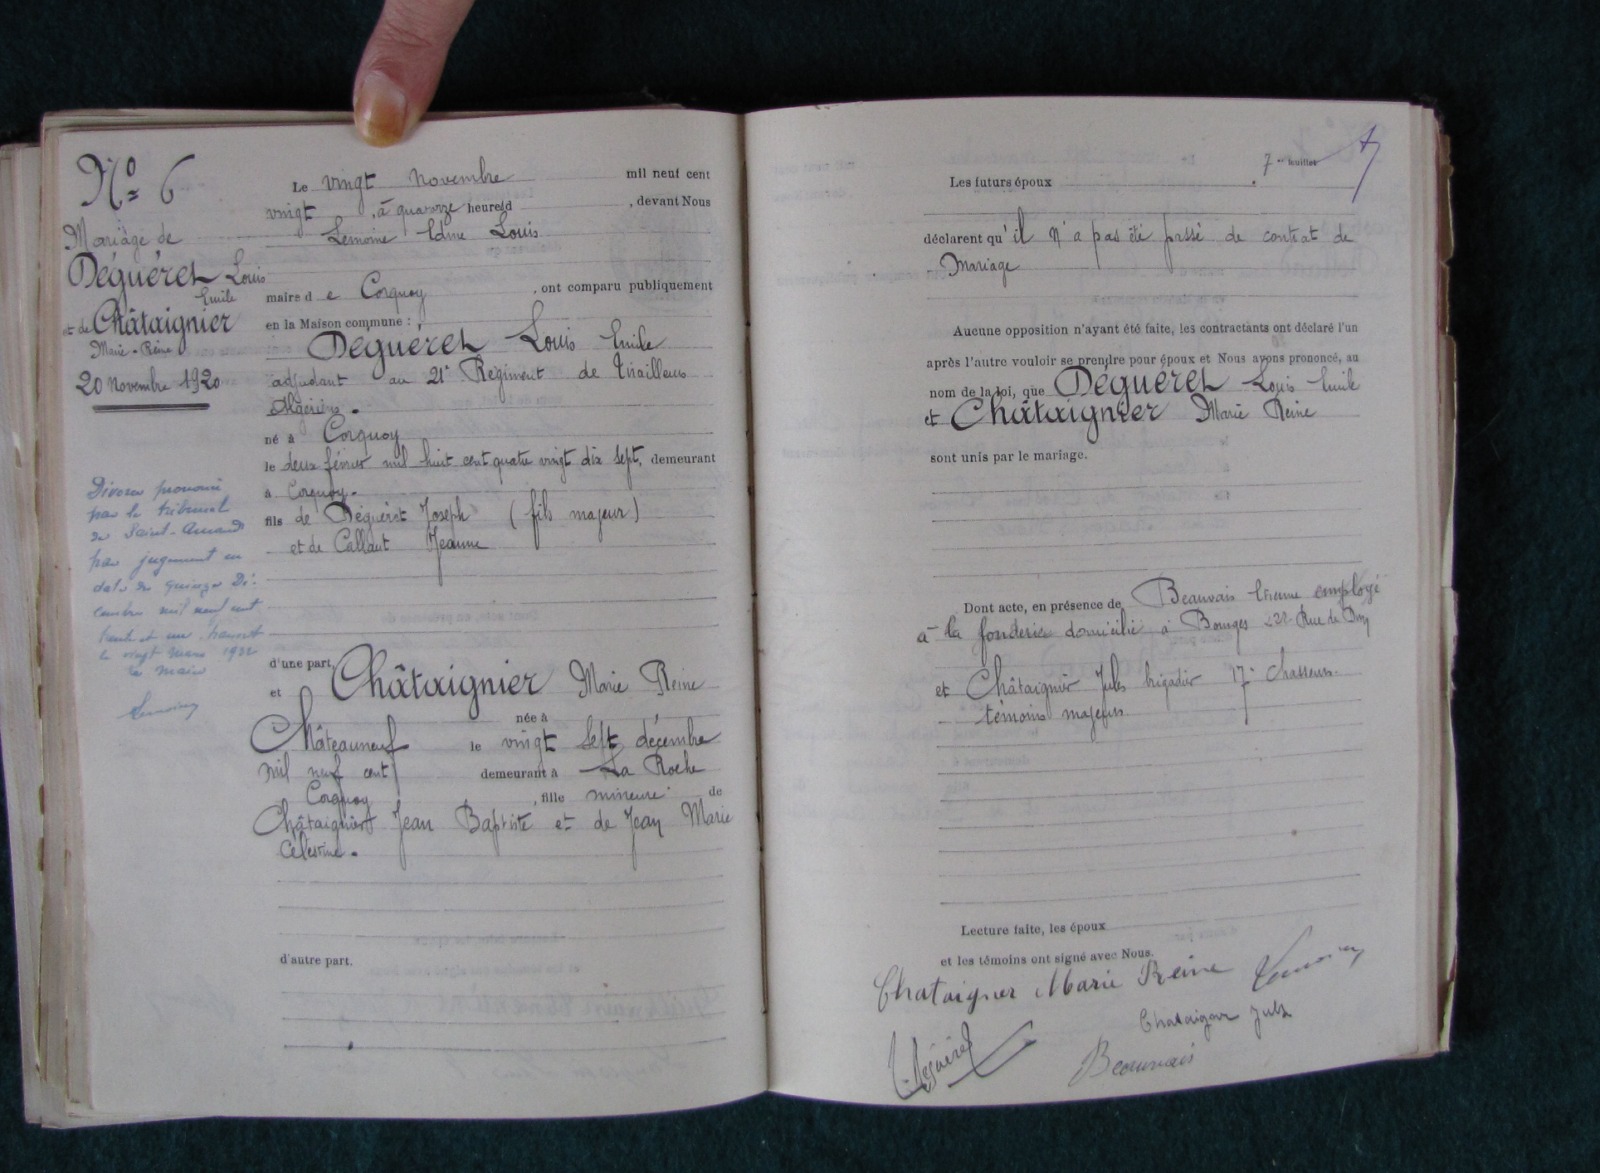 N° 6
Mariage de
Déguéret Louis
Emile
et de Châtaignier
Marie-Reine
20 Novembre 1920
Divorce prononcé
par le tribunal
de Saint-Amand
par jugement en
date du quinze Dé-
cembre mil neuf cent
trente et un. Transcrit
le vingt mars 1932
Le maire
Lemoine
Le vingt Novembre mil neuf cent
vingt, à quatorze heures d, devant Nous
Lemoine Edme Louis
maire de Corquoy, ont comparu publiquement
en la Maison commune :
Déguéret Louis Emile
adjudant au 21e Régiment de Tirailleurs
Algériens.
né à Corquoy
le deux février mil huit cent quatre vingt dix sept, demeurant
à Corquoy.
fils de Déguéret Joseph (fils majeur)
et de Callaut Jeanne
d'une part,
et Châtaignier Marie Reine
née à
Châteauneuf le vingt sept décembre
mil neuf cent demeurant à La Roche
Corquoy, fille mineure de
Châtaignier Jean Baptiste et de Jean Marie
Célestine.
d'autre part.
7me feuillet
Les futurs époux
déclarent qu'il n'a pas été passé de contrat de
mariage
Aucune opposition n'ayant été faite, les contractants ont déclaré l'un
après l'autre vouloir se prendre pour époux et Nous avons prononcé, au
nom de la loi, que Déguéret Louis Emile
et Châtaignier Marie Reine
sont unis par le mariage.
Dont acte, en présence de Beauvais Etienne employé
à la fonderie domicilié à Bourges 222 Rue de Dun
et Châtaignier Jules brigadier 17e chasseurs.
témoins majeurs
Lecture faite, les époux
et les témoins ont signé avec Nous.
Chataigner Marie Reine Lemoine
Chataigner Jules
L. Déguéret
Beauvais